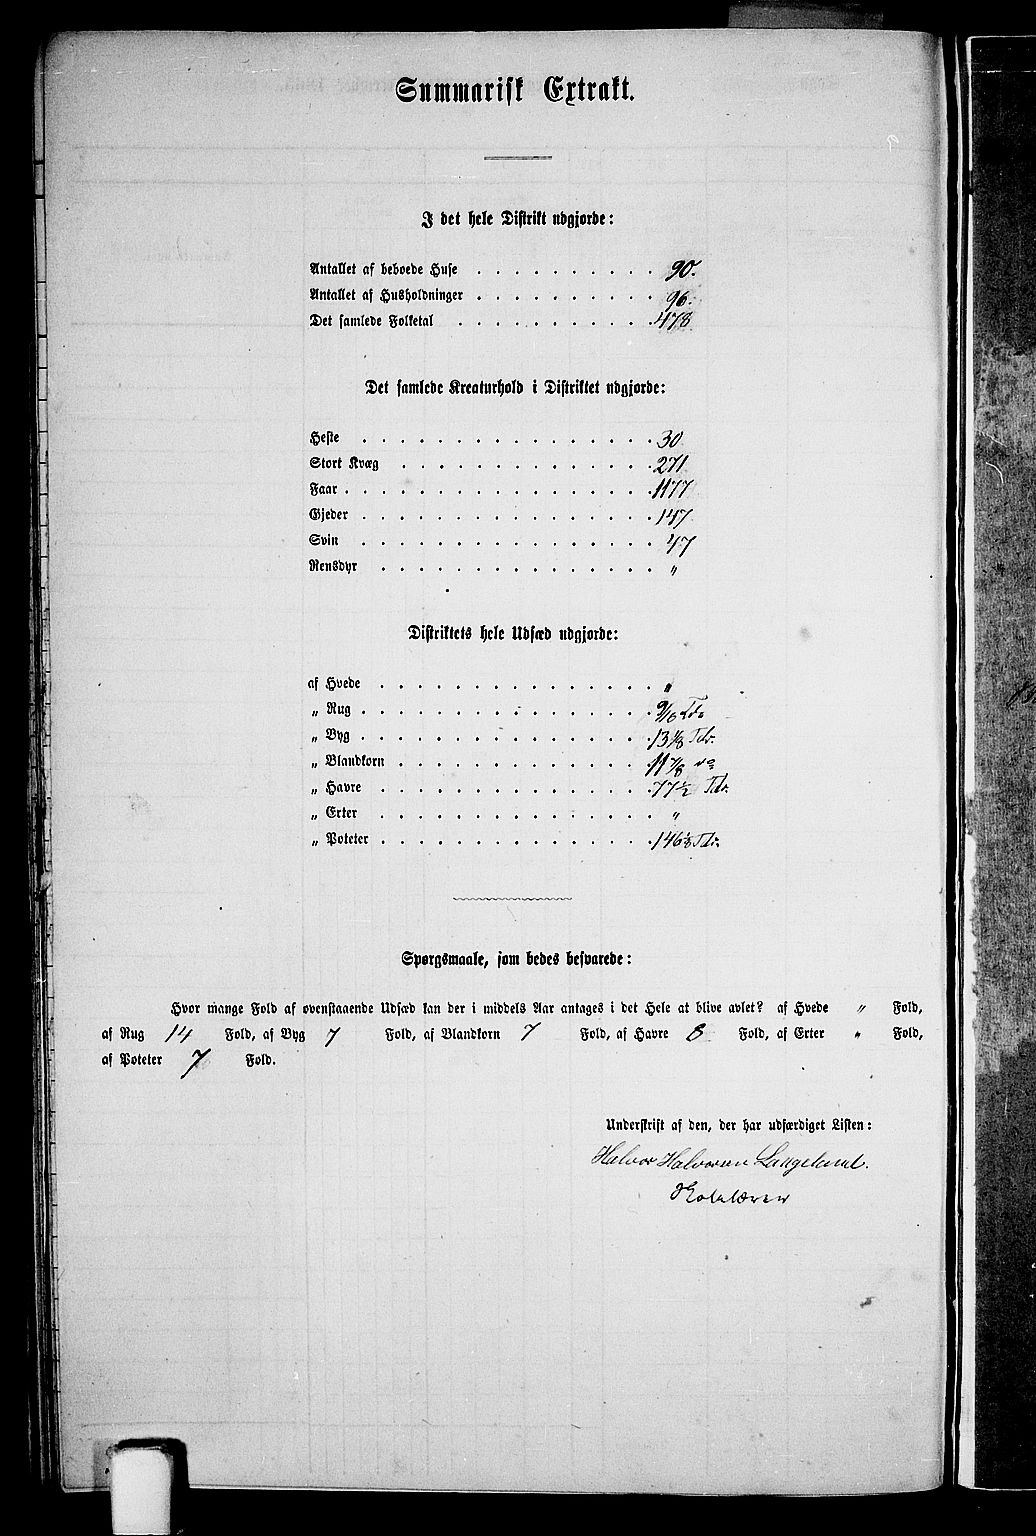 Summarisk Extrakt.
I det hele Distrikt udgjorde:
Antallet af beboede Huse . . . . . . . . . . 90.
Antallet af Husholdninger . . . . . . . . . . 96.
Det samlede Folketal . . . . . . . . . . . 478
Det samlede Kreaturhold i Distriktet udgjorde:
Heste . . . . . . . . . . . . . . . . 30
Stort Kvæg . . . . . . . . . . . . . . 271
Faar . . . . . . . . . . . . . . . . . 1177
Gjeder . . . . . . . . . . . . . . . . 147
Svin . . . . . . . . . . . . . . . . 47
Rensdyr . . . . . . . . . . . . . . . „
Distriktets hele Udsæd udgjorde:
af Hvede . . . . . . . . . . . . . . . „
„ Rug . . . . . . . . . . . . . . . .
„ Byg . . . . . . . . . . . . . . . . 13 ⅛ Tdr.
„ Blandkorn . . . . . . . . . . . . . . 11 ⅞
„ Havre . . . . . . . . . . . . . . . 77 ½ Tdr.
„ Erter . . . . . . . . . . . . . . . „
„ Poteter . . . . . . . . . . . . . . . 146 ⅛ Tdr.
Spørgsmaale, som bedes besvarede:
Hvor mange Fold af ovenstaaende Udsæd kan der i middels Aar antages i det Hele at blive avlet? af Hvede „ Fold,
af Rug 14 Fold, af Byg 7 Fold, af Blandkorn 7 Fold, af Havre 8 Fold, af Erter „ Fold,
af Poteter 7 Fold.
Underskrift af den, der har udfærdiget Listen:
Halvor Halvorsen Langeland.
Skolelærer